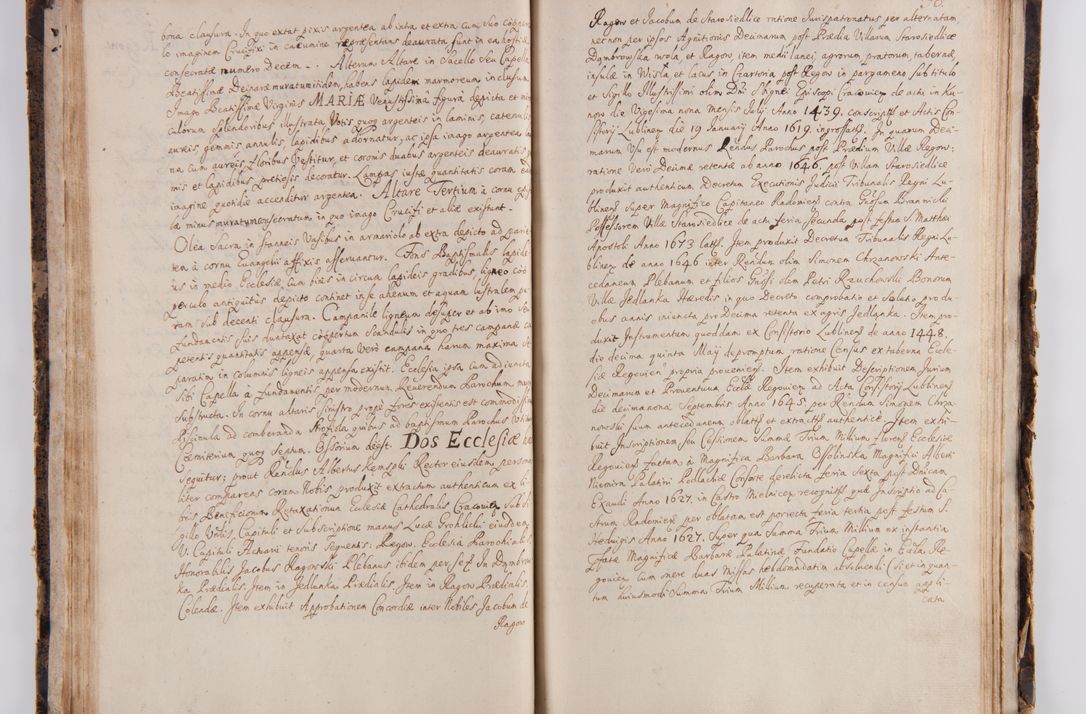 bona clausura. In quo extat pixis argentea ab intra et extra cum suo cooper
lo imaginem Crucifixi in cacumine repræsentans deaurata sunt in ea hostiæ
consecratæ numero Decem. Alterum Altare in Sacello seu Capella
Beatissimæ Deiparæ muratum itidem, habens lapidem marmoreum inclusum
Imago Beatissimæ Virginis MARIÆ Venustissimâ figurâ depicta et mi
culorum splendoribus illustrata Votis quoq argenteis in laminis, catenulis
aureis, gemmis annulis, lapidibus adornatur, ac ipsa imago argentea
na cum aureis floribus Vestitur, et coronis duabus argenteis deauratis
mis et lapidibus pretiosis decoratur. Lampas iustæ quantitatis coram ea
imagine quotidie accenditur argentea. Altare Tertium à cornu
læ minus muratum consecratum in quo imago Crucifixi et aliæ existunt.
Olea Sacra in stanneis Vasibus in armariolo ab extra depicto ad parie
tem à cornu Euangelii affixis asservantur. Fons Baptismalis lapide
us in medio Ecclesiæ cum pixis in circum lapideis gradibus, ligneo coo
perculo antiquitus depicto continet in se ahenum et aquam lustralem pu
ram sub decenti clausura. Campanile ligneum desuper et ab imo
fundamentis suis duntaxat coopertum Scandulis in quo tres campanæ
petentis quantitatis appensæ, quarta Verò campana harum maxima
paratim in columnis ligneis appensa existit. Ecclesia ipsa cum adiuncta
Siti Capella à fundamentis per modernum Reuerendum Parochum
substructa. In cornu altaris sinistro propè fores existentis est commodissima
Piscinula ad comburanda Stofida quibus ad baptismum Parochus
Cæmiterium quoq septum. Ossorium deest. Dos Ecclesiæ
sequitur; prout Rendus Albertus Rensoki Rector eiusdem, persona
liter comparens coram Nobis produxit extractum authenticum ex li
bris Beneficiorum Retaxationum Ecclesiæ Cathedralis Cracouien sub Si
gillo Vnlis, Capituli et Subscriptione manus Lucæ Grohlicki eiusdem
V. Capituli Actuarii tenoris sequentis: Ragow. Ecclesia Parochialis
Honorabilis Jacobus Ragowski Plebanus ibidem per se. In Dymbrow
ka Prædialis. Item in Jedlanka Prædialis. Item in Ragow Prædialis.
Colendæ. Item exhibuit Approbationem Concordiæ inter Nobiles Jacobum de
Ragow
70.
Ragow et Jacobum de Starosiedlice ratione Jurispatronatus per alternatam
nec non per ipsos Agnitionis Decimarum post Prædia Villarum Starosiedlice
Dymbrowska wola, et Ragow item medii lanei, agrorum pratorum, tabernæ,
insulæ in Wisla et lacus in Czartoria post Ragow in pargameno sub titulo
et Sigillo Illustrissimi olim Dni Sbignei Episcopi Cracouien de actu in Ku
now die Vigesima nona Mensis Julii Anno 1439. conscriptis et Actis Con
sistorii Lublinen die 19 Januarii Anno 1619. ingrossatis. In quarum Deci
marum Usu est modernus Rendus Parochus post Prædium Villæ Ragow:
ratione Verò Decimæ retentæ ab anno 1646. post Villam Starosiedlice
produxit authenticum Decretum Executionis Judicii Tribunalis Regni Lu
blinen super Magnifico Capitaneo Radomien contra Gnosum Brannicki
Possessorem Villæ Starosiedlice de actu feria secunda post festum S. Matthæi
Apostoli Anno 1673 latis. Item produxit Decretum Tribunalis Regni Lu
blinen de anno 1646 inter Rendum olim Simonem Chrzanowski Ante
cedaneum Plebanum et filios Gnosi olim Petri Rzuchowski Bonorum
Villæ Jedlanka Hæredis in quo Decreto, comprobatio et Solutio pro du
obus annis iniuncta pro Decima retenta ex agris Jedlanka. Item pro
duxit Instrumentum quoddam ex Consistorio Lublinen de anno 1448.
die decima quinta Maii depromptum ratione Census ex taberna Eccle
siæ Regouien propria prouenien. Item exhibuit Descriptionem Jurium
Decimarum et Prouentuum Ecclæ Regouien ad Acta Consistorii Lublinen
die decimanona Septembris Anno 1645 per Rendum Simonem Chrza
nowski suum antecedaneum oblatis et extractis authenticè. Item exhi
buit Inscriptionem, seu Cessionem Summæ Trium Millium floren Ecclesiæ
Regouien factam à Magnifica Barbara Ossolinska Magnifici Alberti
Niemira Palatini Podlachiæ Consorte derelicta feria sexta post Dnicam
Exaudi Anno 1627. in Castro Mielnicen recognitis, quæ Inscriptio ad Ca
strum Radomien per oblatam est porrecta feria tertia post festum S.
Heduigis Anno 1627. Super qua Summa Trium Millium ex instantia
Præfatæ Magnificæ Barbaræ Palatinæ Fundatio Capellæ in Eccla Re
gouien cum onere duas Missas hebdomadatim absoluendi (si et in quan
tum huiusmodi Summa Trium Millium recuperata et in censum appli-
cata